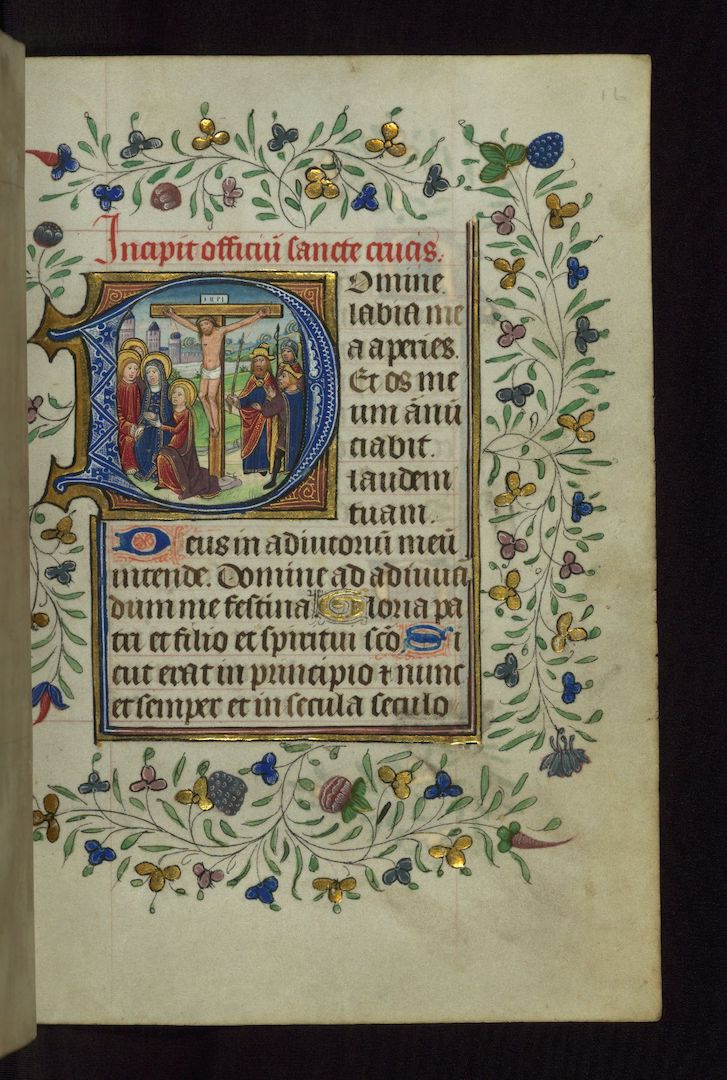 Incipit officiū sancte crucis.
INRI
Domine
labia me
a aperies.
Et os me
um ānū
ciabit.
laudem
tuam.
Deus in adiutoriū meū
intende. Domine ad adiuuā
dum me festina. Gloria pa
tri et filio et spiritui scō Si
cut erat in principio ⁊ nunc
et semper et in secula seculo